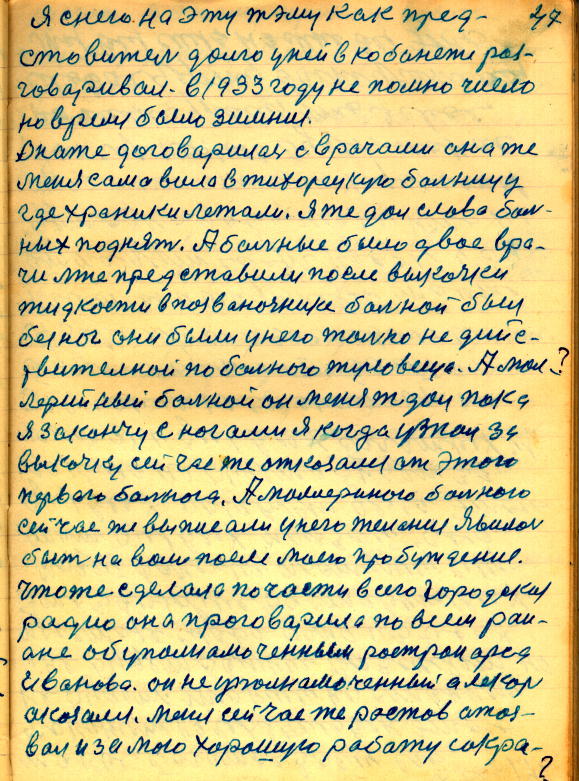 Я с нею на эту тэму как пред- 47
ставител долго у ней в кобанете раз-
говаривал. в 1933 году не помню число
но время было зимния.
Она же договарилас с врачами она же
меня сама вила в тихорецкую болницу
где храники лежали. Я же дал слова бол-
ных поднят. А болные было двое вра-
чи мне представили после выкочки
жидкости в позваночнике болной был
без ног они были у него толко не дийс-
твителной по болного туловеща. А мол- ?
лерийный болной он меня ждал пока
я закончу с ногами я когда узнал за
выкочку сей час же отказался от этого
первого болного. А моллериного болного
сей час же выписали у него желания явилос
быт на воли после моего пробуждение.
Что же сделала по части всего городская
радио она проговарила по всем рай-
ане об уполнамоченным
Иванова. он не уполнамоченный а лекар
оказался. Меня сей час же ростов отоз-
вал и за мою хорошую работу сокра-
?